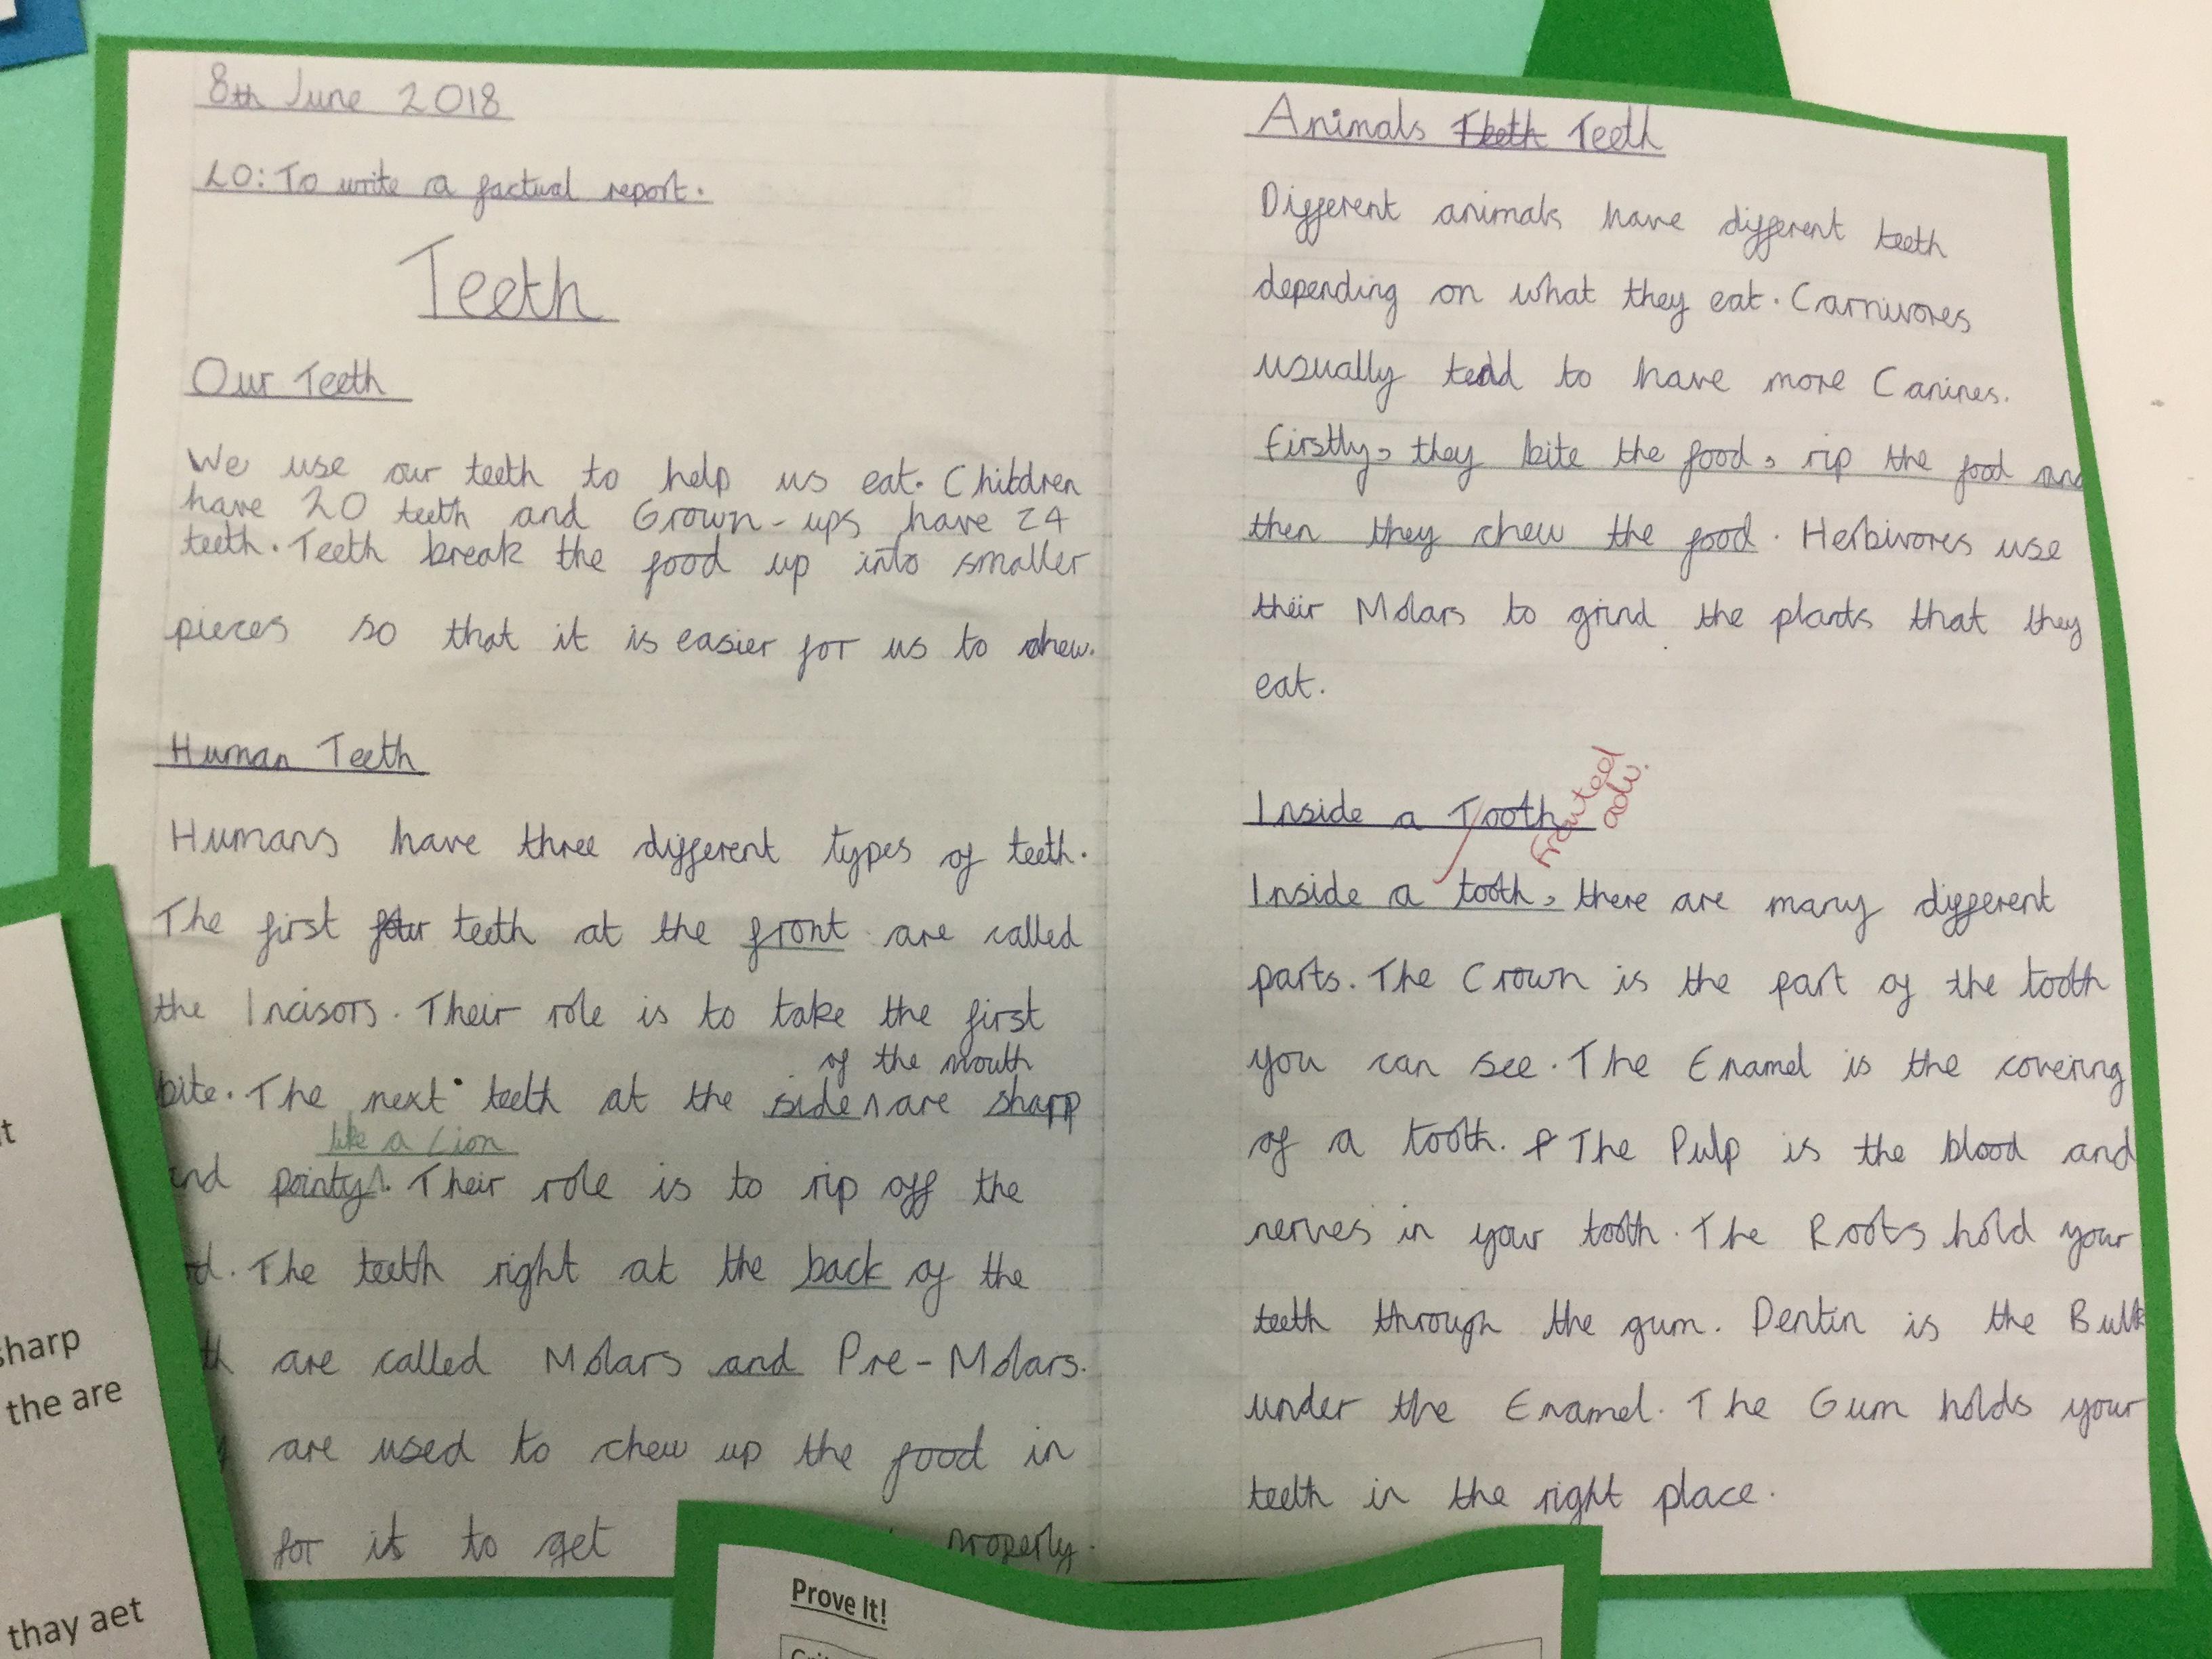 8th June 2018
LO: To write a factual report.
Teeth
Our Teeth
We use our teeth to help us eat. Children
have 20 teeth and Grown-ups have 24
teeth. Teeth break the food up into smaller
pieces so that it is easier for us to chew.
Human Teeth
Humans have three different types of teeth.
The first four teeth at the front are called
the Incisors. Their role is to take the first
of the mouth
bite. The next teeth at the side ^ are sharp
like a Lion
nd pointy ^. Their role is to rip off the
d. The teeth right at the back of the
th are called Molars and Pre-Molars.
y are used to chew up the food in
for it to get properly.
Animals Teeth Teeth
Different animals have different teeth
depending on what they eat. Carnivores
usually tend to have more Canines.
Firstly, they bite the food, rip the food and
then they chew the food. Herbivores use
their Molars to grind the plants that they
eat.
Inside a Tooth
Fronted
adv.
Inside a tooth, there are many different
parts. The Crown is the part of the tooth
you can see. The Enamel is the covering
of a tooth. The Pulp is the blood and
nerves in your tooth. The Roots hold your
teeth through the gum. Dentin is the Bulk
under the Enamel. The Gum holds your
teeth in the right place.
t
sharp
the are
thay aet
Prove It!